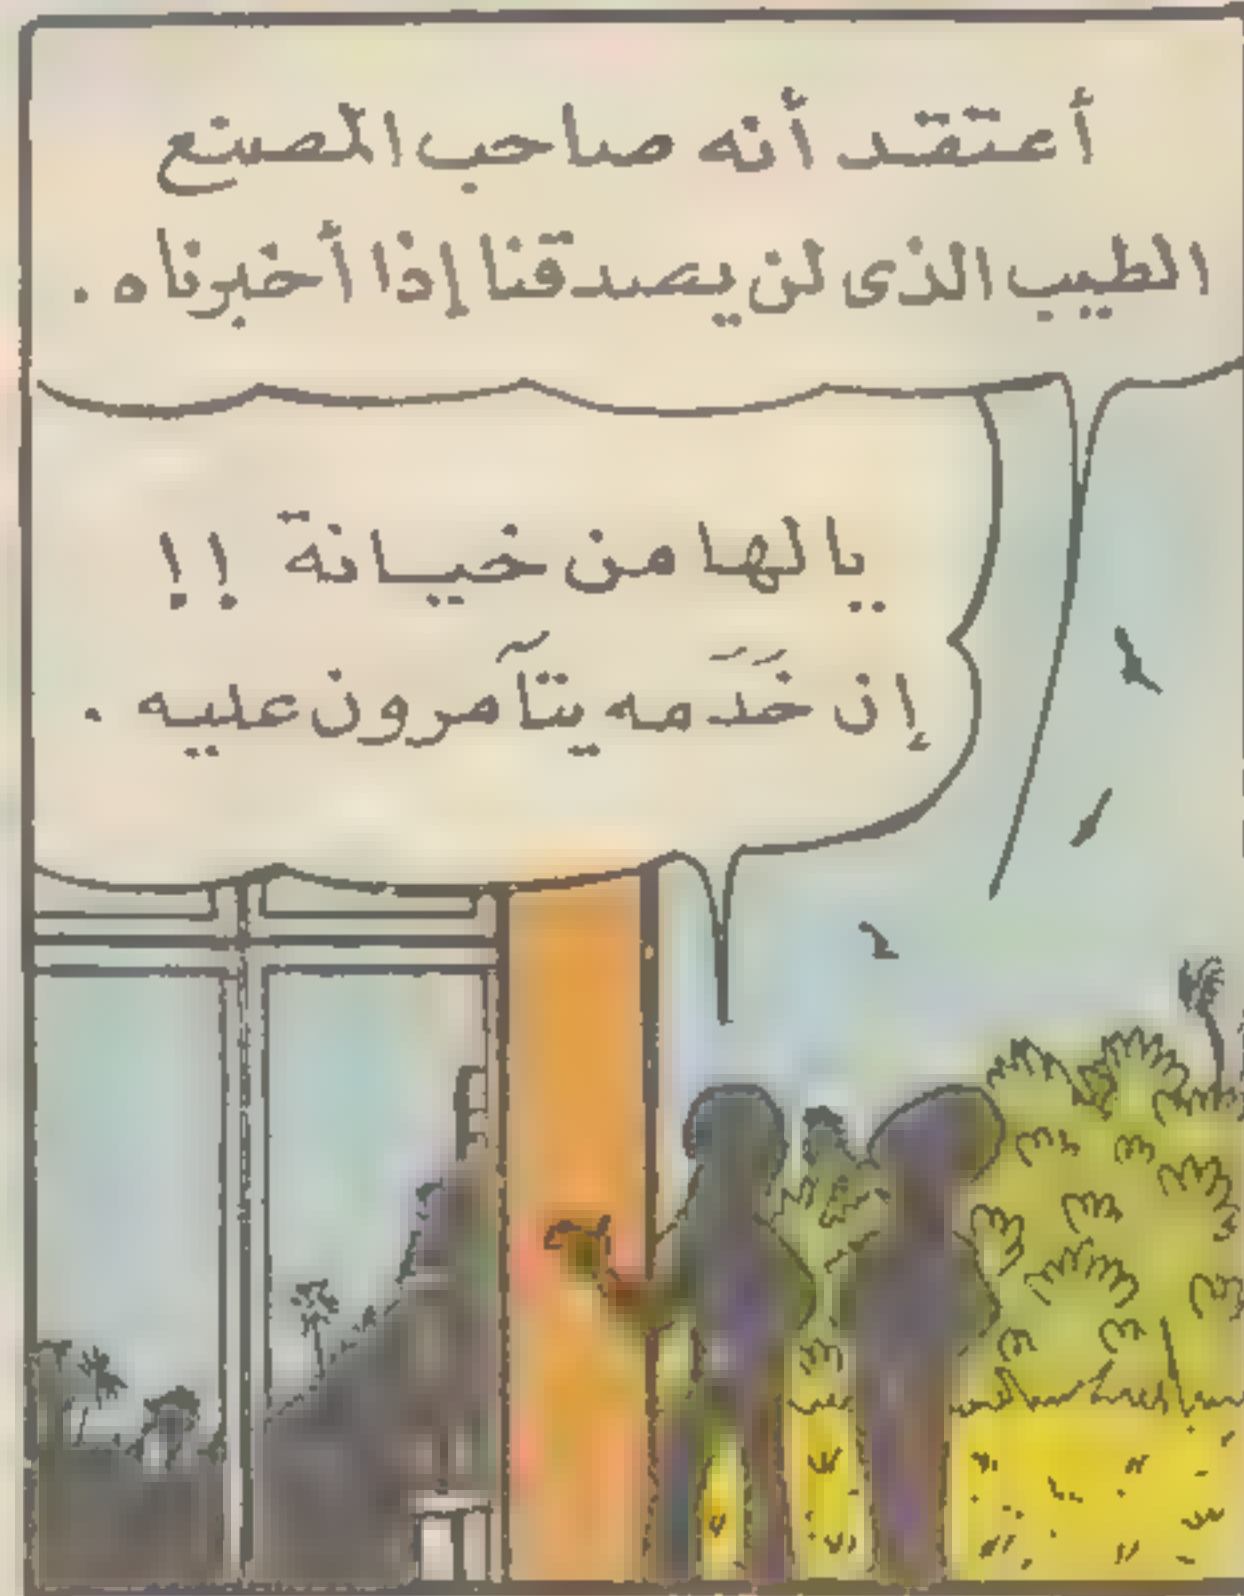 أعتقد أنه صاحب المصنع
الطيب الذى لن يصدقنا إذا أخبرناه .
يالها من خيانة !!
إن خَدَمه يتآمرون عليه .